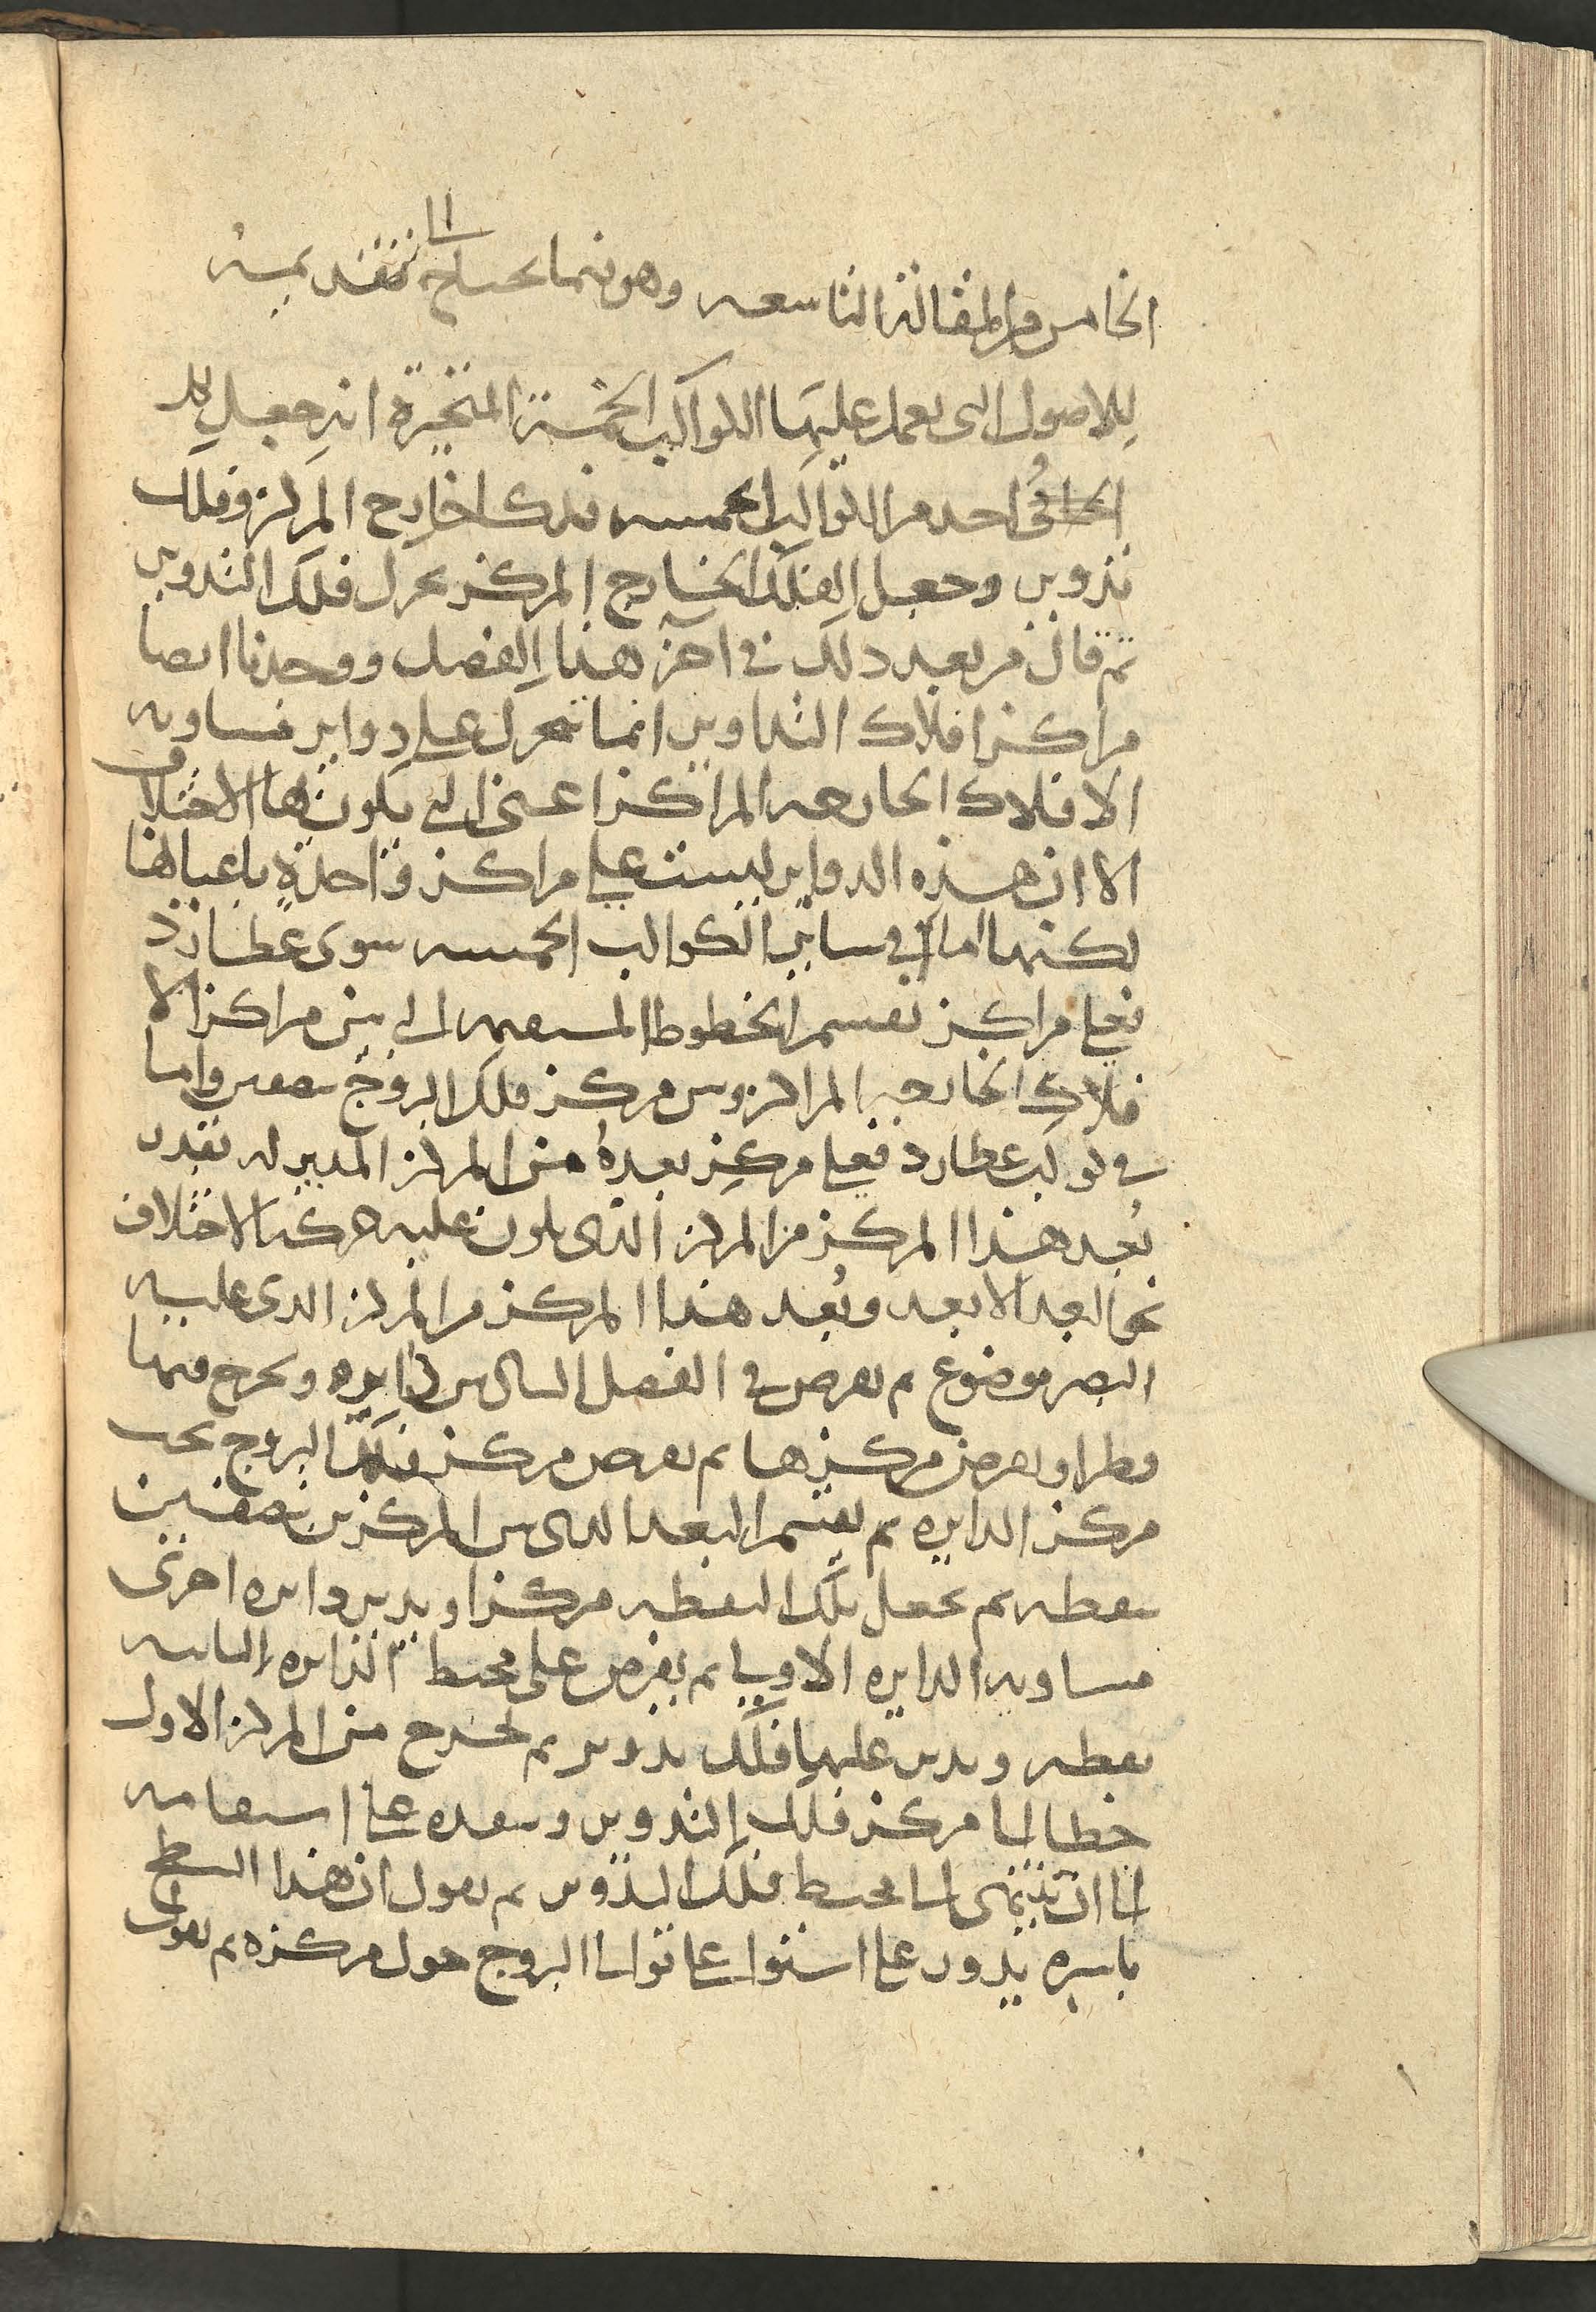 الخامس من المقالة التاسعه وهو فيما يحتاج الى تقديمه
للاصول التى يعمل عليها الكواكب الخمسة المتحيرة انه جعل لكل
واحد من الكواكب الخمسه فلكا خارج المركز وفلك
تدوير وجعل الفلك الخارج المركز يحرك فلك التدوير
ثم قال من بعد ذلك فى آخر هذا الفصل ووجدنا ايضا
مراكز افلاك التداوير انما تتحرك على دواير مساويه
الافلاك الخارجه المراكز اعنى التى يكون بها الاختلاف
الا ان هذه الدواير ليست على مراكز واحدة باعيانها
لكنها اما فى ساير الكواكب الخمسه سوى عطارد
فعلى مراكز تقسم الخطوط المستقيمه التى بين مراكز الا
فلاك الخارجه المراكز وبين مركز فلك البروج بنصفين واما
فى كوكب عطارد فعلى مركز بعده من المركز المدير له بقدر
بُعد هذا المركز من المركز الذى يكون عليه حركة الاختلاف
نحو البعد الابعد وبُعد هذا المركز من المركز الذى عليه
البصر موضوع ثم يفرض فى الفصل السادس دايره ويخرج فيها
قطرا ويفرض مركزها ثم يفرض مركز فلك البروج تحت
مركز الدايره ثم يقسم البعد الذى بين المركزين بنصفين
بنقطه ثم يجعل تلك النقطه مركزا ويدير دايره اخرى
مساويه الدايره الاولى ثم يفرض على محيط الدايره الثانيه
نقطه ويدير عليها فلك تدوير ثم يخرج من المركز الاول
خطا الى مركز فلك التدوير وينفده على استقامه
الى ان ينتهى الى محيط فلك التدوير ثم يقول ان هذا السطح
باسره يدور على استواء على توالى البروج حول مركزه ثم يقول